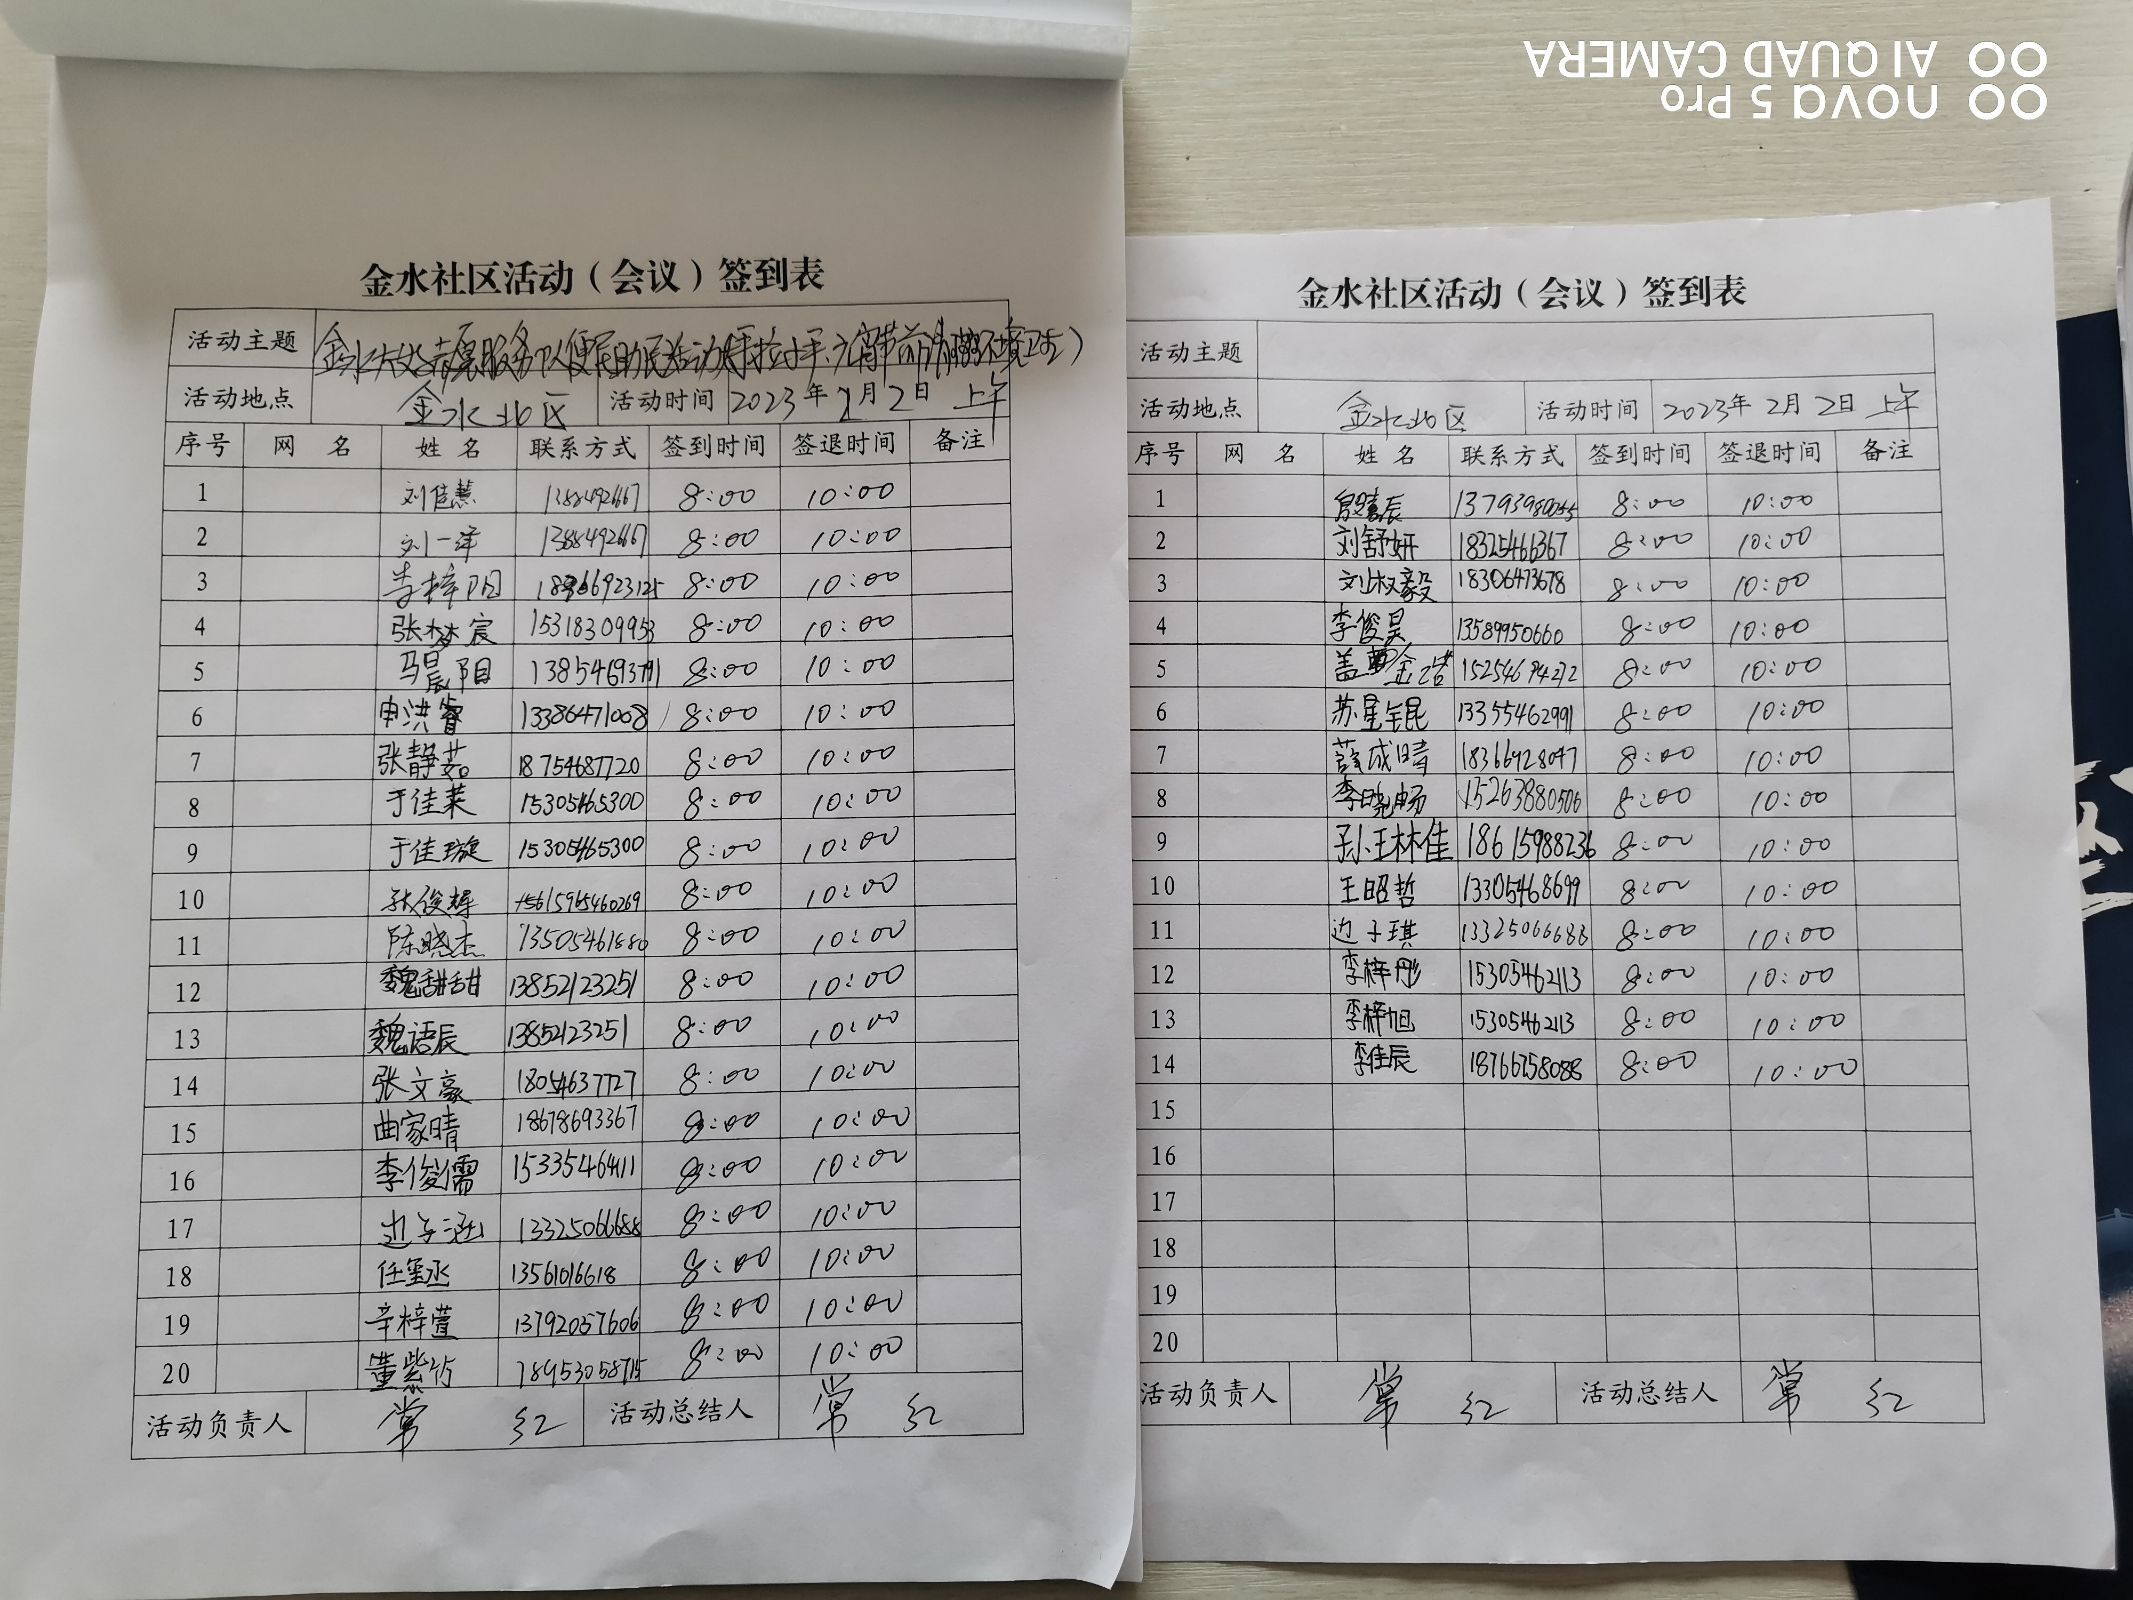 nova 5 Pro
AI QUAD CAMERA
金水社区活动（会议）签到表
活动主题
活动地点 金水北区 活动时间 2023年2月2日 上午
序号 网 名 姓 名 联系方式 签到时间 签退时间 备注
1 刘佳慧 8:00 10:00
2 刘一泽 8:00 10:00
3 李梓阳 8:00 10:00
4 张梦宸 15318309953 8:00 10:00
5 马晨阳 8:00 10:00
6 申洪睿 13386471008 8:00 10:00
7 张静茹 18754687720 8:00 10:00
8 于佳莱 15305465300 8:00 10:00
9 于佳璇 15305465300 8:00 10:00
10 张俊辉 8:00 10:00
11 陈晓杰 13505461880 8:00 10:00
12 魏甜甜 13852123251 8:00 10:00
13 魏语辰 13852123251 8:00 10:00
14 张文豪 8:00 10:00
15 曲家晴 18678693367 8:00 10:00
16 李俊儒 8:00 10:00
17 边子涵 13325066688 8:00 10:00
18 任玺丞 13561016618 8:00 10:00
19 辛梓萱 13792057606 8:00 10:00
20 董紫竹 8:00 10:00
活动负责人 常红 活动总结人 常红
金水社区活动（会议）签到表
活动主题
活动地点 金水北区 活动时间 2023年2月2日 上午
序号 网 名 姓 名 联系方式 签到时间 签退时间 备注
1 8:00 10:00
2 刘舒妍 18325466367 8:00 10:00
3 刘权毅 18306473678 8:00 10:00
4 李俊昊 13589950660 8:00 10:00
5 盖金诺 8:00 10:00
6 苏星锟 13355462991 8:00 10:00
7 薛成晴 18366928047 8:00 10:00
8 李晓畅 15263880506 8:00 10:00
9 孙王林佳 18615988236 8:00 10:00
10 王昭哲 13305468699 8:00 10:00
11 边子琪 13325066688 8:00 10:00
12 李梓彤 15305462113 8:00 10:00
13 李梓旭 15305462113 8:00 10:00
14 李佳辰 18766758088 8:00 10:00
15
16
17
18
19
20
活动负责人 常红 活动总结人 常红